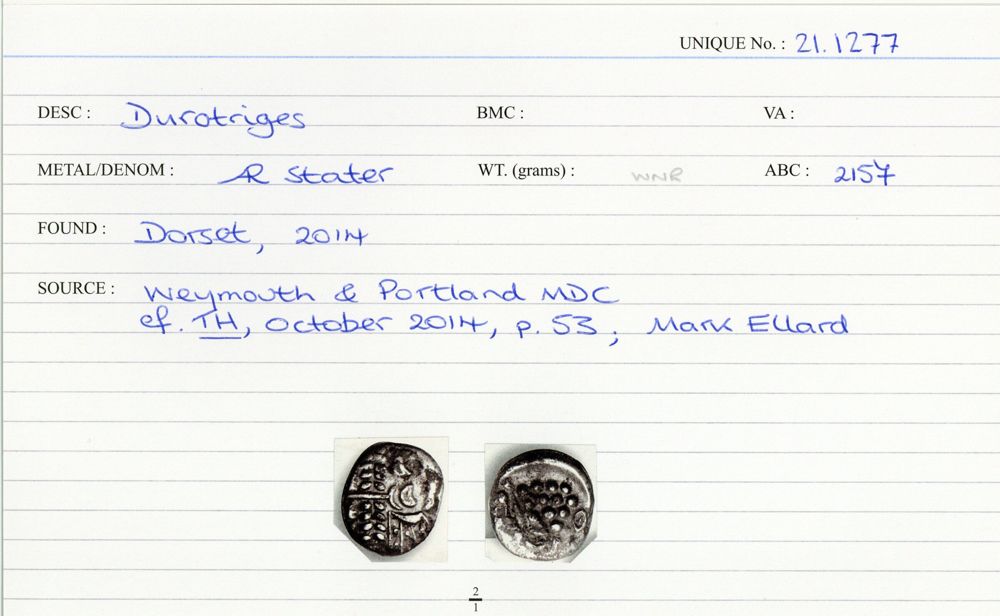 UNIQUE No. : 21.1277
DESC : Durotriges BMC : VA :
METAL/DENOM : AR Stater WT. (grams) : WNR ABC : 2157
FOUND : Dorset, 2014
SOURCE : Weymouth & Portland MDC
cf. TH, October 2014, p. 53; Mark Ellard
2
1